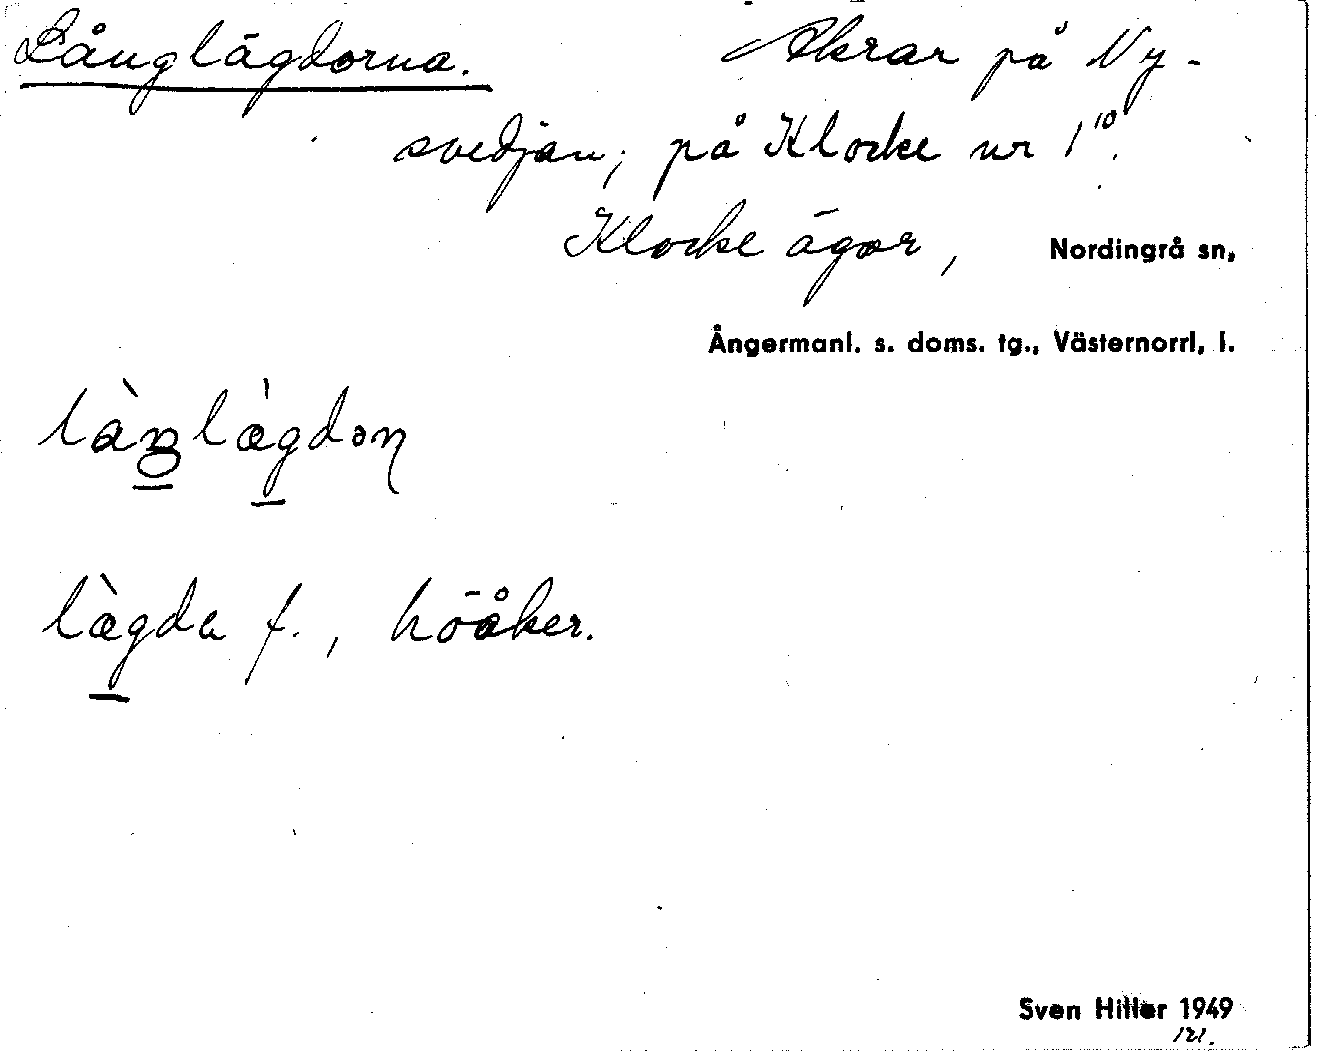 Långlägdorna. Åkrar på Ny-
svedjan; på Klocke nr 1¹⁰.
Klocke ägor, Nordingrå sn,
Ångermanl. s. doms. tg., Västernorrl, l.
lägda f., höåker.
Sven Hiller 1949
121.